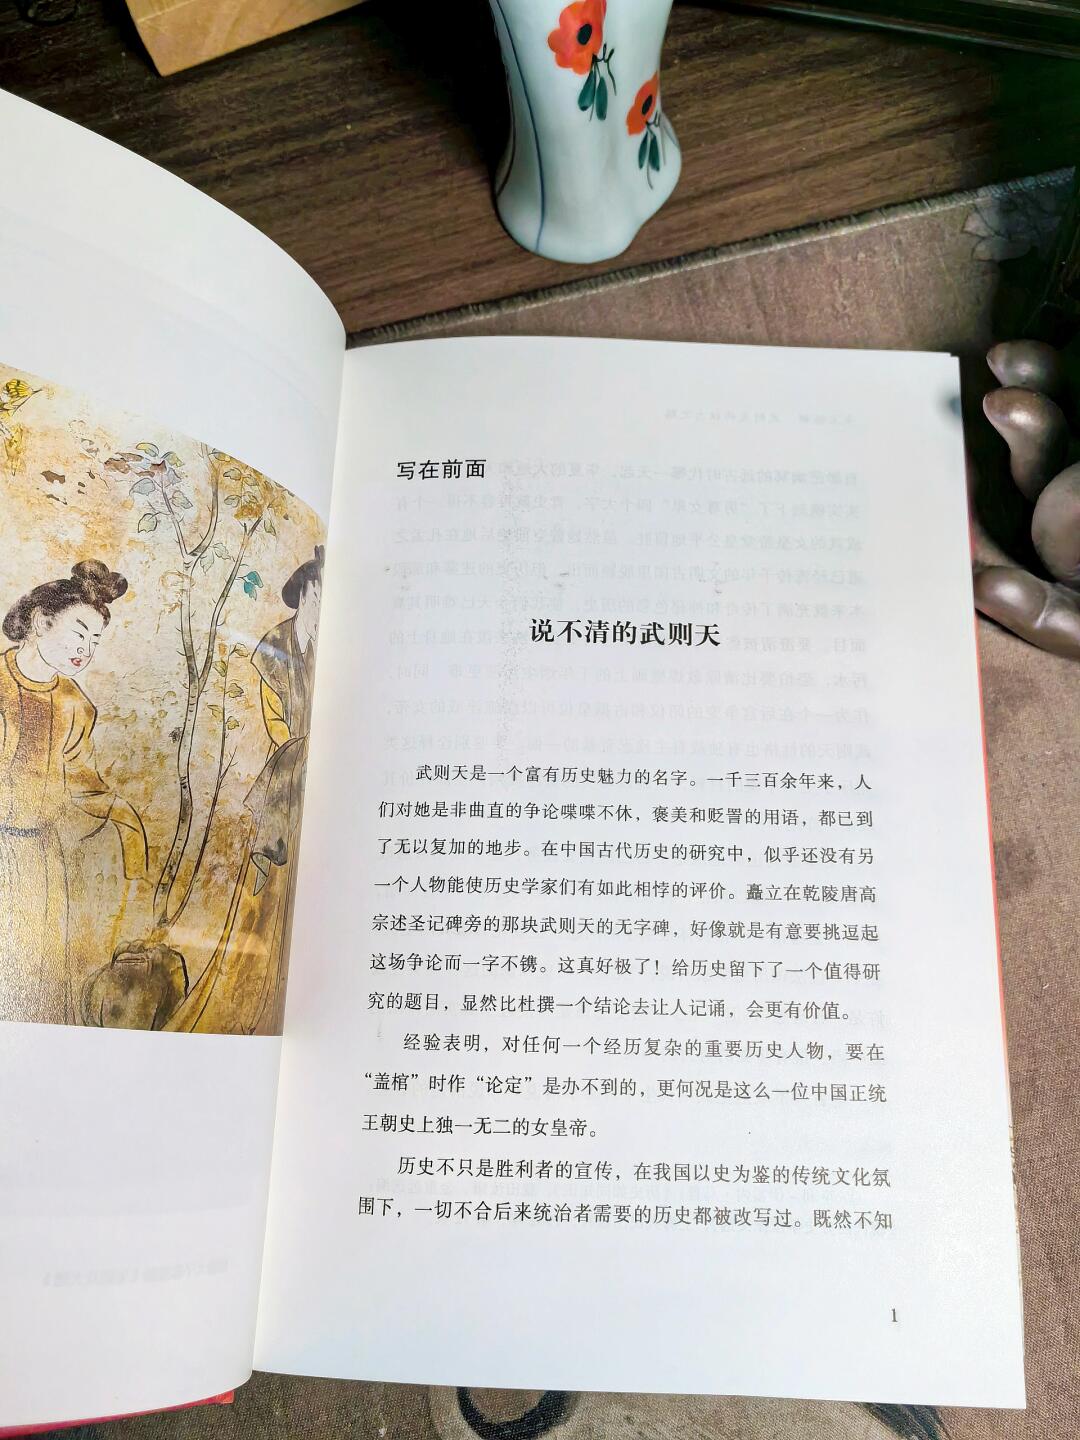 写在前面
说不清的武则天
武则天是一个富有历史魅力的名字。一千三百余年来，人
们对她是非曲直的争论喋喋不休，褒美和贬詈的用语，都已到
了无以复加的地步。在中国古代历史的研究中，似乎还没有另
一个人物能使历史学家们有如此相悖的评价。矗立在乾陵唐高
宗述圣记碑旁的那块武则天的无字碑，好像就是有意要挑逗起
这场争论而一字不镌。这真好极了！给历史留下了一个值得研
究的题目，显然比杜撰一个结论去让人记诵，会更有价值。
经验表明，对任何一个经历复杂的重要历史人物，要在
“盖棺”时作“论定”是办不到的，更何况是这么一位中国正统
王朝史上独一无二的女皇帝。
历史不只是胜利者的宣传，在我国以史为鉴的传统文化氛
围下，一切不合后来统治者需要的历史都被改写过。既然不知
1